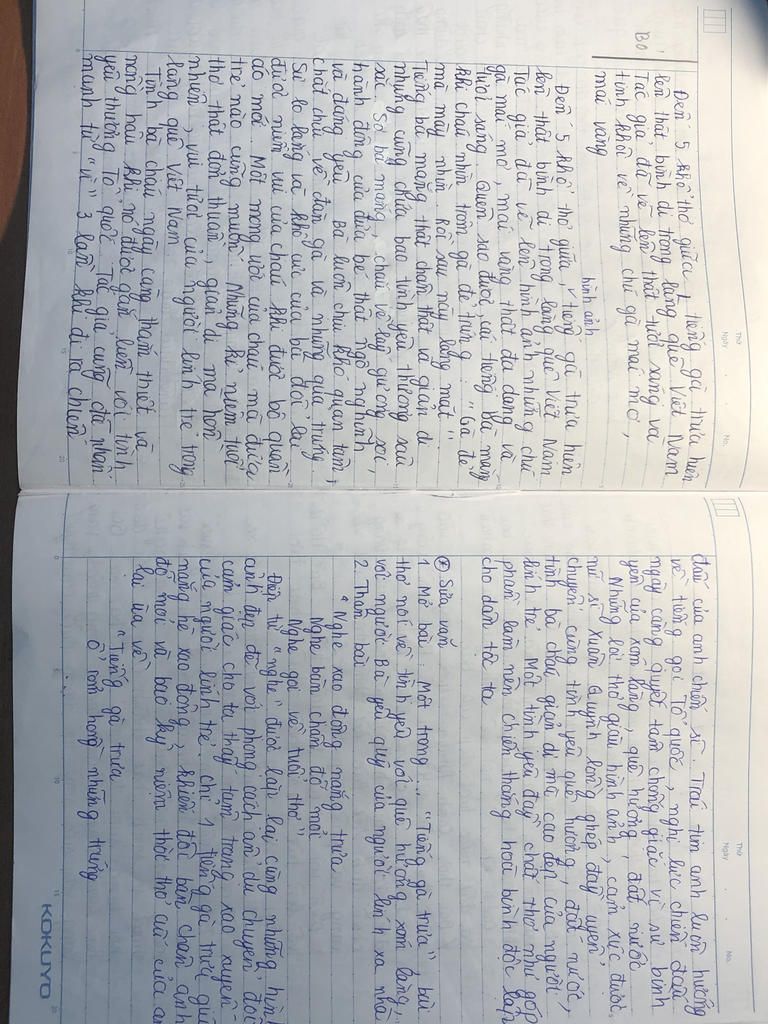 Thứ
Ngày
No.
Bỏ
Đến 5 khổ thơ giữa, tiếng gà trưa hiện
lên thật bình dị trong làng quê Việt Nam.
Tác giả đã vẽ lên thật tươi sáng và
tinh khôi về những chú gà mái mơ,
mái vàng
hình ảnh
Đến 5 khổ thơ giữa, tiếng gà trưa hiện
lên thật bình dị trong làng quê Việt Nam
Tác giả đã vẽ lên hình ảnh những chú
gà mái mơ, mái vàng thật đa dạng và
tươi sáng. Quên sao được, cái tiếng Bà mắng
khi cháu nhìn trộm gà đẻ trứng: "Gà đẻ
mà mày nhìn. Rồi sau này lang mặt".
Tiếng bà mắng thật chân thật và giản dị
nhưng cũng chứa bao tình yêu thương sâu
xa. Sợ bà mắng, cháu về lấy gương soi,
hành động của đứa bé thật ngộ nghĩnh
và đáng yêu. Bà luôn chịu khó quan tâm,
chắt chiu về đàn gà và những quả trứng.
Sự lo lắng và khổ cực của bà đổi lại
được niềm vui của cháu khi được bộ quần
áo mới. Một mong ước của cháu mà đứa
trẻ nào cũng muốn. Những kỉ niệm tuổi
thơ thật đơn thuần, giản dị mà hồn
nhiên, vui tươi của người lính trẻ trong
làng quê Việt Nam.
Tình bà cháu ngày càng thắm thiết và
nồng hậu khi nó được gắn liền với tình
yêu thương Tổ quốc. Tác giả cũng đã nhấn
mạnh từ "vì" 3 lần khi đi ra chiến
Thứ
Ngày
No.
đấu của anh chiến sĩ. Trái tim anh luôn hướng
về tiếng gọi Tổ quốc, nghị lực chiến đấu
ngày càng quyết tâm chống giặc vì sự bình
yên của xóm làng, quê hương, đất nước.
Những lời thơ giàu hình ảnh, cảm xúc được
nữ sĩ Xuân Quỳnh lồng ghép đầy uyển
chuyển cùng tình yêu quê hương, đất nước,
tình bà cháu giản dị mà cao đẹp của người
lính trẻ. Một tình yêu đầy chất thơ như góp
phần làm nên chiến thắng hoà bình độc lập
cho dân tộc ta
* Sửa văn
1. Mở bài: Một trong ... "Tiếng gà trưa" bài
thơ nói về tình yêu với quê hương, xóm làng,
với người Bà yêu quý của người lính xa nhà
2. Thân bài
"Nghe xao động nắng trưa
Nghe bàn chân đỡ mỏi
Nghe gọi về tuổi thơ"
Điệp từ "nghe" được lặp lại cùng những hình
ảnh đẹp đẽ với phong cách ẩn dụ chuyển đổi
cảm giác cho ta thấy tâm trạng xao xuyến
của người lính trẻ. Chỉ 1 tiếng gà trưa giữa
nắng hè xao động, khiến đôi bàn chân anh
đỡ mỏi và bao kỷ niệm thời thơ ấu của anh
lại ùa về
"Tiếng gà trưa
Ổ rơm hồng những trứng
KOKUYO